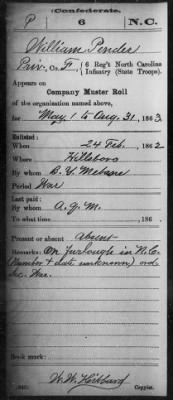 Confederate.
P | 6 | N.C.
William Pender
Priv., Co. F, 6 Reg't North Carolina
Infantry (State Troops).
Appears on
Company Muster Roll
of the organization named above,
for May 1 to Aug. 31, 1863.
Enlisted:
When 24 Feb., 1862
Where Hillsboro
By whom B. Y. Mebane
Period War
Last paid:
By whom A. Q. M.
To what time , 186 .
Present or absent absent
Remarks: On furlough in N.C.
(number & date unknown) ord
Sec. War.
Book mark:
W. W. Hibbard
Copyist.